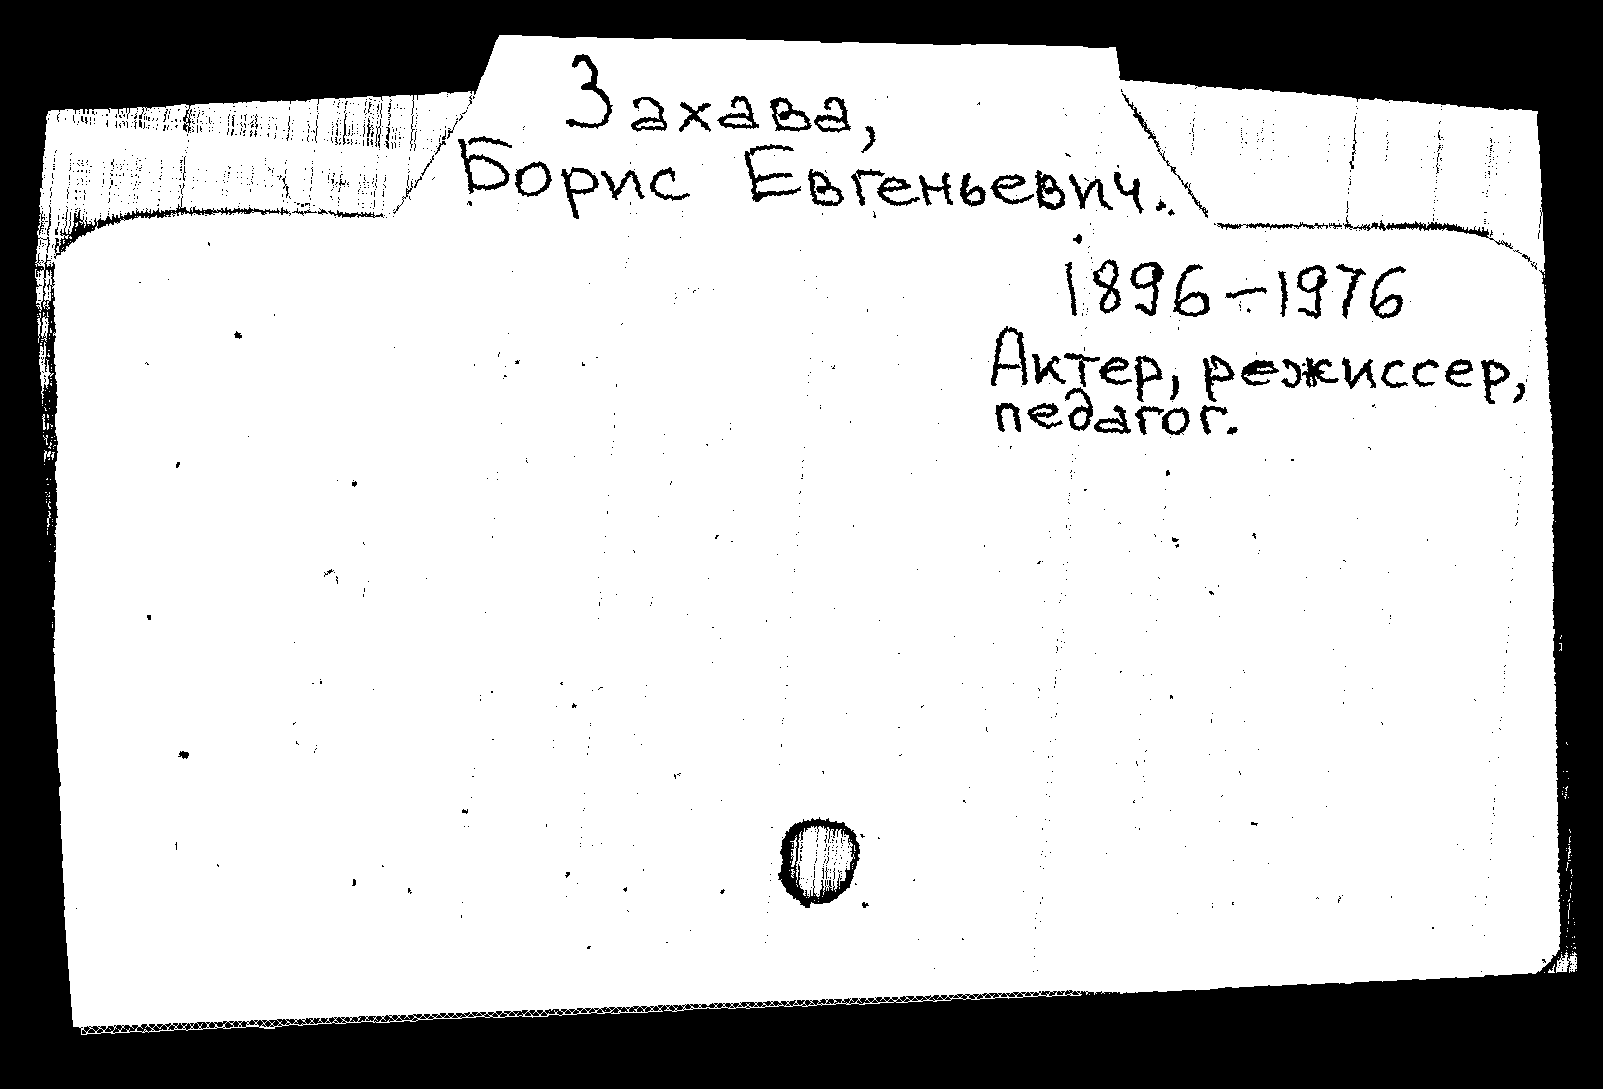 Захава,
Борис Евгеньевич.
1896-1976
Актер, режиссер,
педагог.